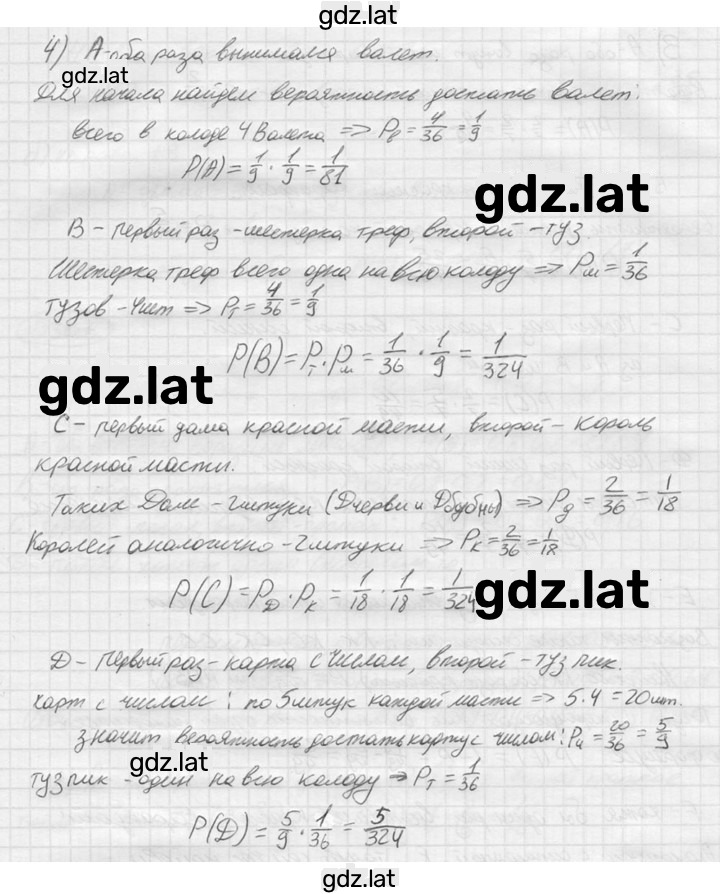 gdz.lat
4) А - оба раза вынимался валет.
Для начала найдем вероятность достать валет:
всего в колоде 4 валета => Pв = 4/36 = 1/9
P(A) = 1/9 · 1/9 = 1/81
gdz.lat
В - первый раз - шестерка треф, второй - туз
Шестерка треф всего одна на всю колоду => Pш = 1/36
тузов - 4шт => Pт = 4/36 = 1/9
P(B) = Pт · Pш = 1/36 · 1/9 = 1/324
gdz.lat
С - первый дама красной масти, второй - король
красной масти.
Таких Дам - 2 штуки (Дчерви и Дбубны) => Pд = 2/36 = 1/18
Королей аналогично - 2 штуки => Pк = 2/36 = 1/18
P(C) = PД · Pк = 1/18 · 1/18 = 1/324
gdz.lat
Д - первый раз - карта с числом, второй - туз пик.
карт с числом: по 5 штук каждой масти => 5·4 = 20шт.
значит вероятность достать карту с числом: Pч = 20/36 = 5/9
туз пик - один на всю колоду => Pт = 1/36
gdz.lat
P(Д) = 5/9 · 1/36 = 5/324
gdz.lat